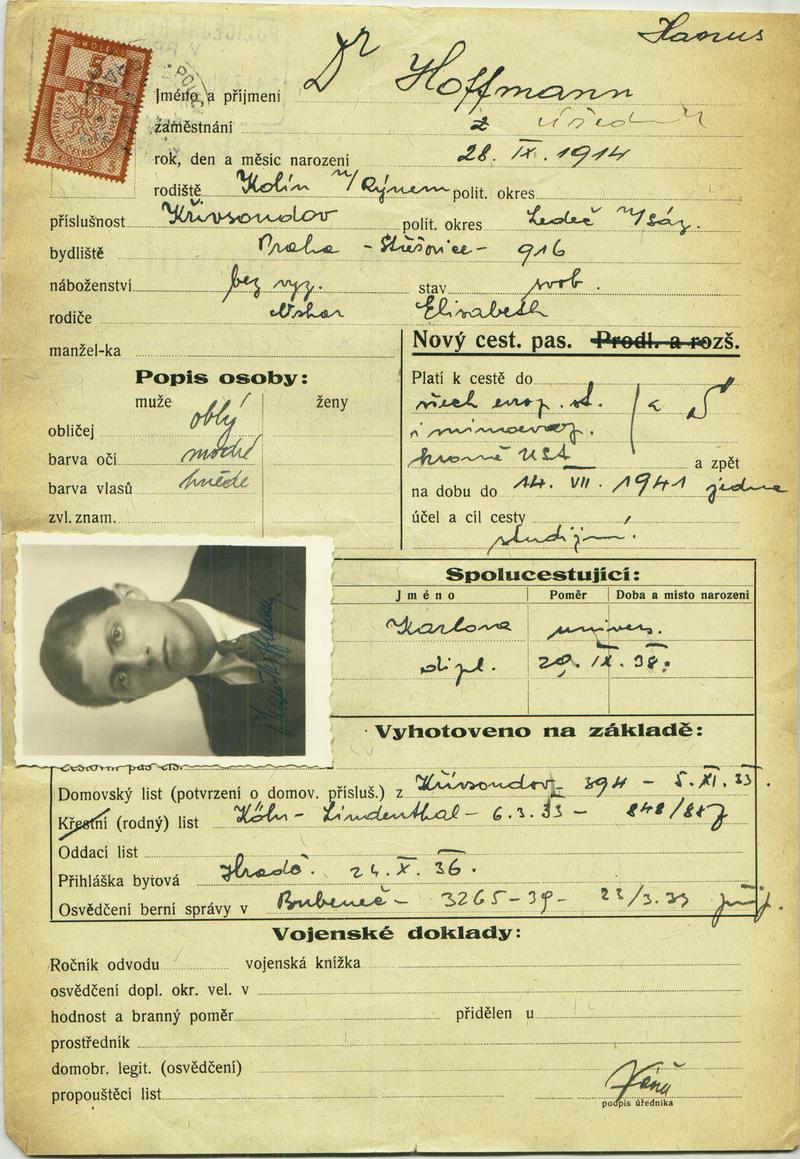 Hanus
Dr Hoffmann
Jméno a příjmení
zaměstnání
rok, den a měsíc narození 28. IX. 1914
rodiště Kolín n/Rýnem polit. okres
příslušnost Křivsoudov polit. okres Ledeč n/Sáz.
bydliště Praha - Střešovice - 916
náboženství bez vyz. stav svob.
rodiče Oskar Elisabeth
manžel-ka
Nový cest. pas. Prodl. a rozš.
Popis osoby:
muže ženy
obličej oblý
barva očí modré
barva vlasů hnědé
zvl. znam.
Platí k cestě do
všech evrop. st.
i mimoevrop.
kromě USA a zpět
na dobu do 14. VII. 1941
účel a cíl cesty
studijní
Spolucestující:
Jméno Poměr Doba a misto narozeni
Karlova univers.
dipl. 29. IX. 38.
Vyhotoveno na základě:
Cestovní pas čís.
Domovský list (potvrzení o domov. přísluš.) z Křivsoudov - 394 - 5. XI. 33.
Křestní (rodný) list Köln - Lindenthal - 6.3.33 - 848/887
Oddací list
Přihláška bytová Hradč. 24. X. 36.
Osvědčení berní správy v Bubeneč - 3265-39 - 22/3.39
Vojenské doklady:
Ročník odvodu vojenská knížka
osvědčení dopl. okr. vel. v
hodnost a branný poměr přidělen u
prostředník
domobr. legit. (osvědčení)
propouštěcí list
podpis úředníka